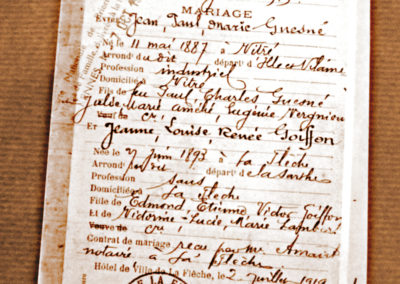 MARIAGE
Entre Jean, Paul, Marie Guesné
Né le 11 mai 1887 à Vitré
Arrond<sup>t</sup> dudit départ<sup>t</sup> d'Ille et Vilaine
Profession industriel
Domicilié Vitré
Fils de feu Paul, Charles Guesné
Et de Marie Amélie, Eugénie Vergnion
Veuf de
Et Jeanne, Louise, Renée Goiffon
Née le juin 1893 à La Flèche
Arrond<sup>t</sup> dudit départ<sup>t</sup> de la Sarthe
Profession sans
Domiciliée La Flèche
Fille de Edmond Etienne Victor Goiffon
Et de Victorine Lucie, Marie
Veuve de
Contrat de mariage reçu par Me
notaire à La Flèche
Hôtel de Ville de La Flèche, le 2 juillet 1919